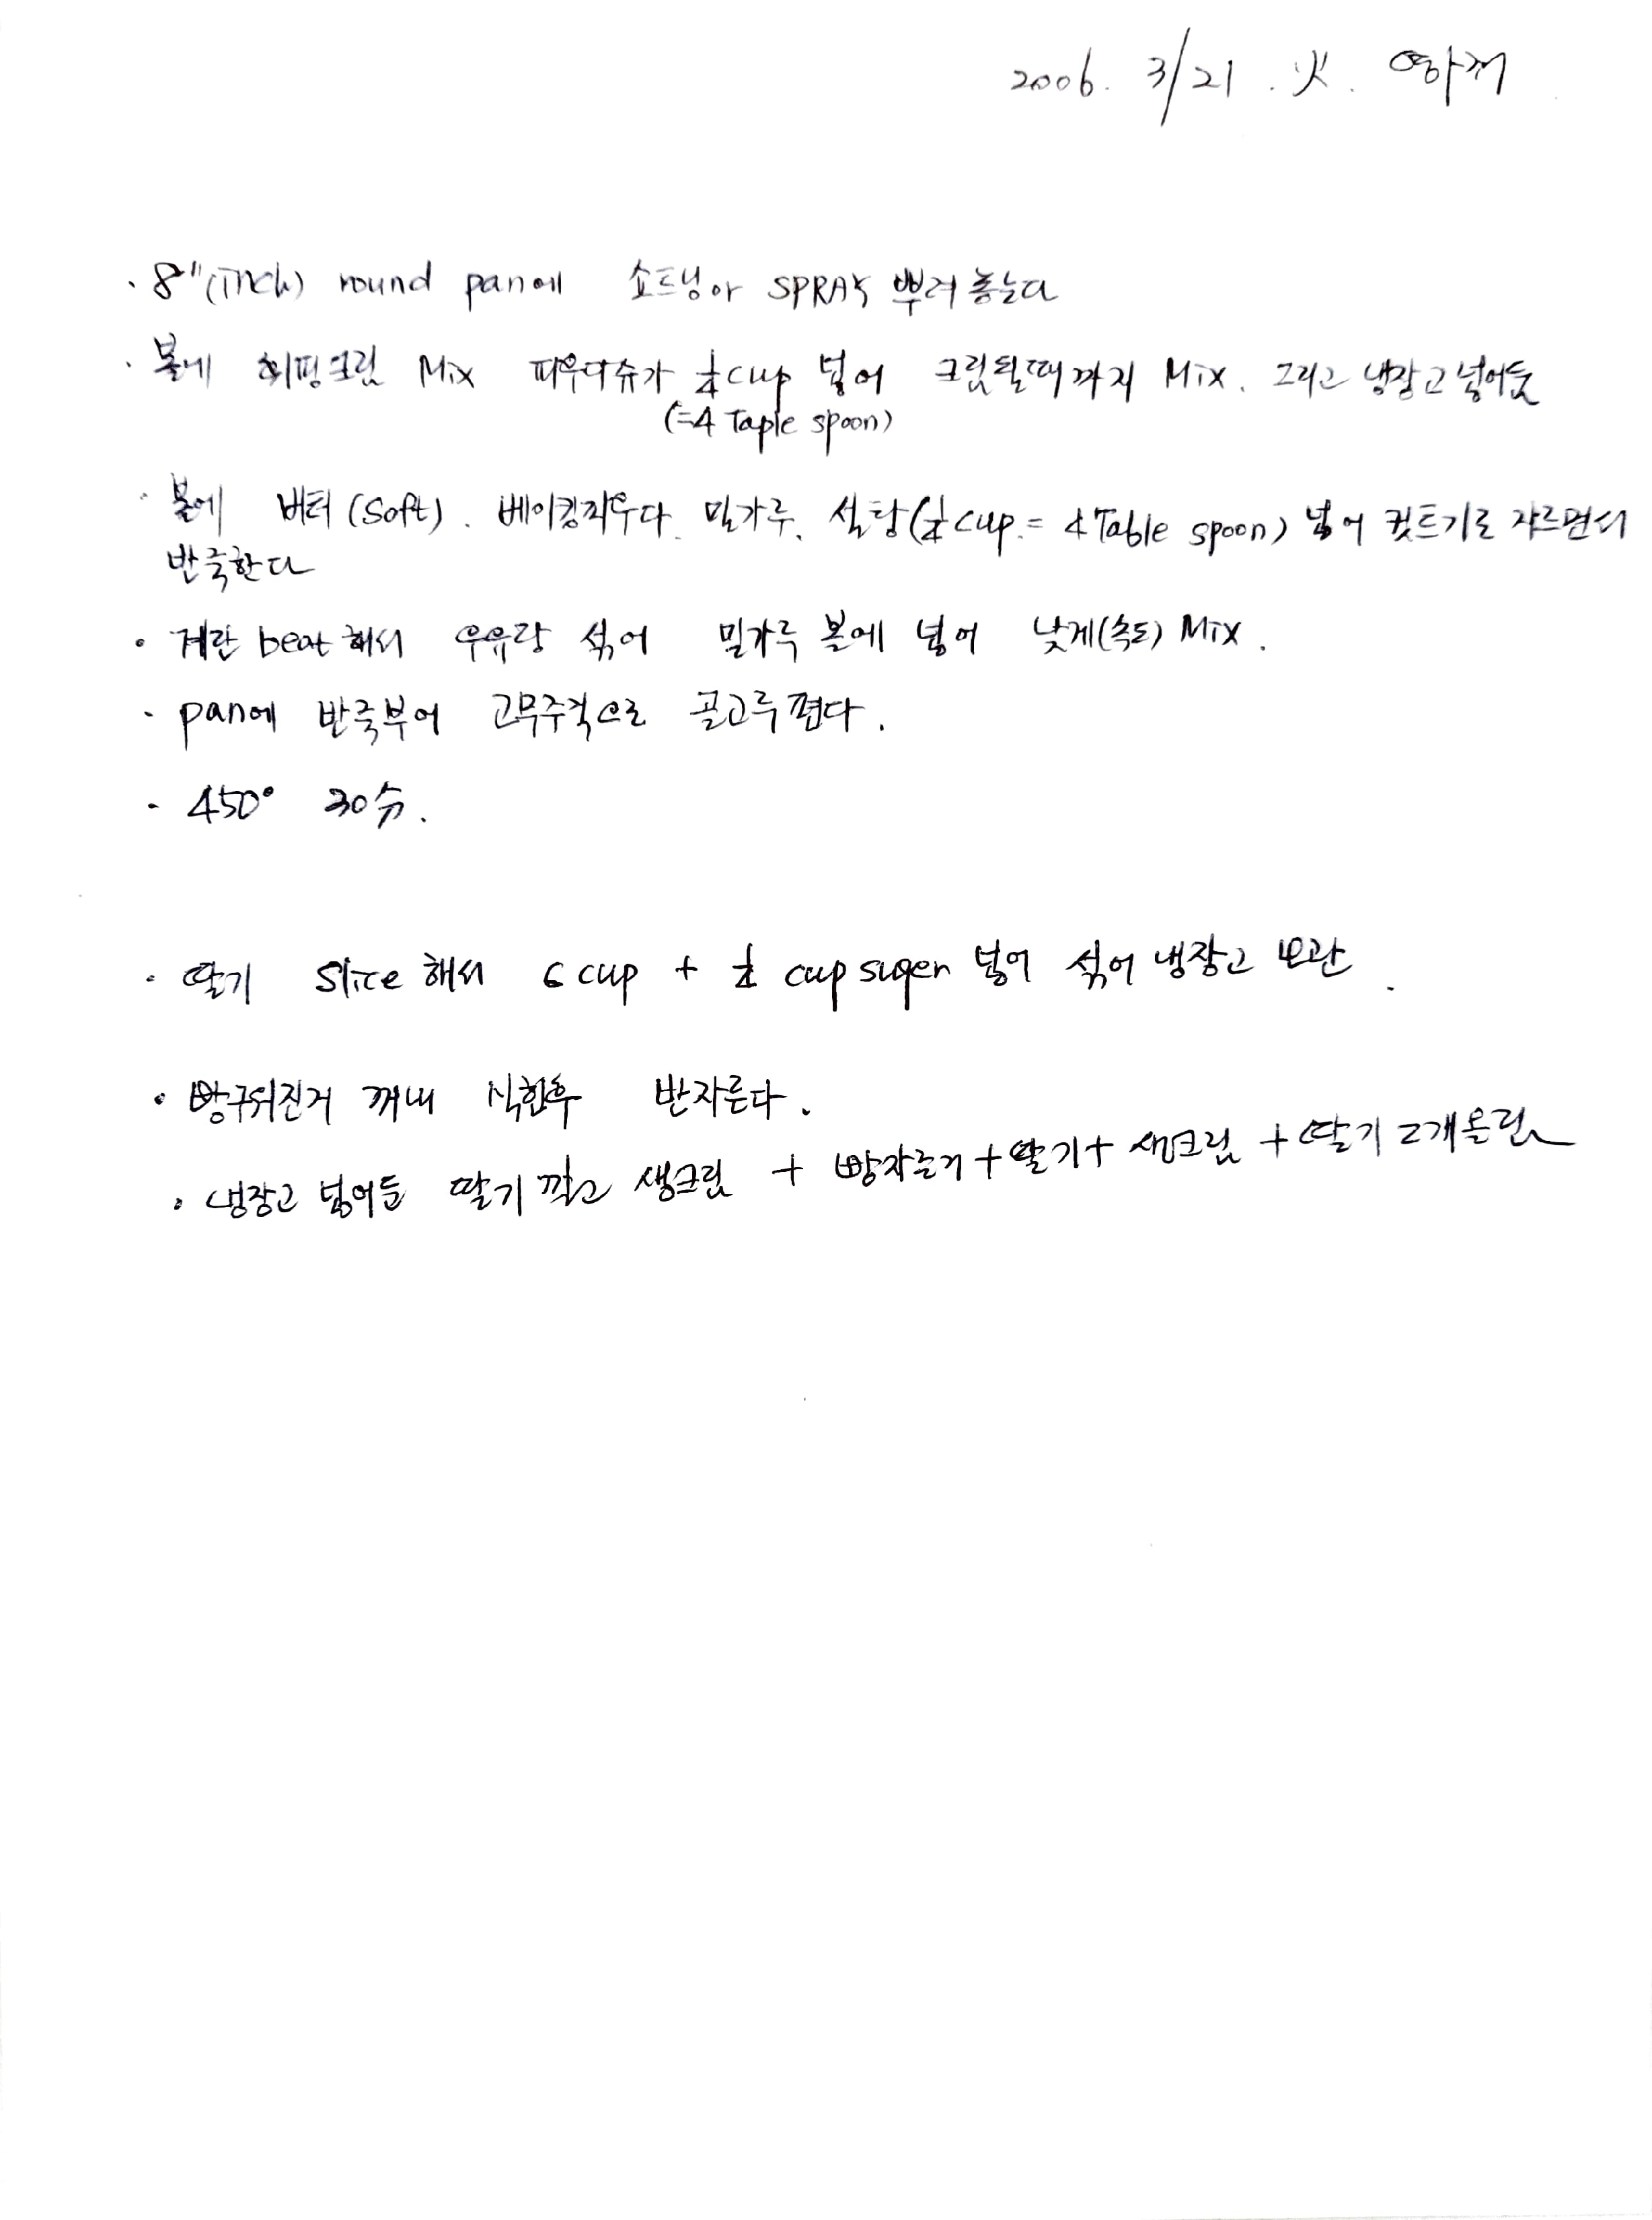 2006. 3/21 . 火.
· 8"(inch) round pan에 쇼트닝 or SPRAY 뿌려놓는다
· 볼에 휘핑크림 Mix 파우더슈가 1/4 cup 넣어 크림될때까지 Mix. 그리고 냉장고 넣어둠
(=4 Taple spoon)
· 볼에 버터(Soft). 베이킹파우다. 밀가루. 설탕(1/4 cup = 4 Table spoon) 넣어 컷트기로 자르면서
반죽한다
· 계란 beat해서 우유랑 섞어 밀가루 볼에 넣어 낮게(속도) Mix.
· pan에 반죽부어 고무주걱으로 골고루편다.
· 450° 30分.
· 딸기 Slice 해서 6 cup + cup sugen 넣어 섞어 냉장고 보관.
· 빵구워진거 꺼내 식힌후 반자른다.
· 냉장고 넣어둔 딸기 깔고 생크림 + 빵자른거 + 딸기 + 생크림 + 딸기 2개올린다